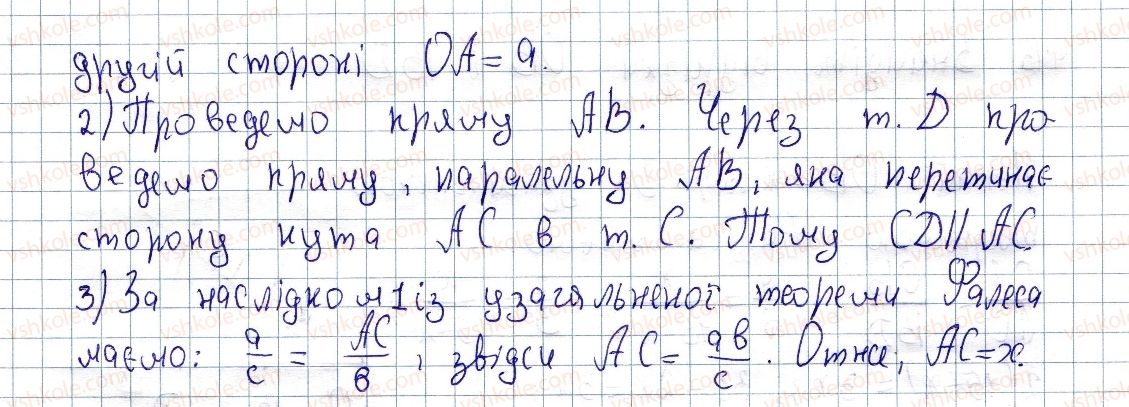 другій стороні OA = a.
2) Проведемо пряму AB. Через т. D про-
ведемо пряму, паралельну AB, яка перетинає
сторону кута AC в т. C. Тому CD || AC
3) За наслідком 1 із узагальненої теореми Фалеса
маємо: a/c = AC/в, звідси AC = aв/c. Отже, AC = x.